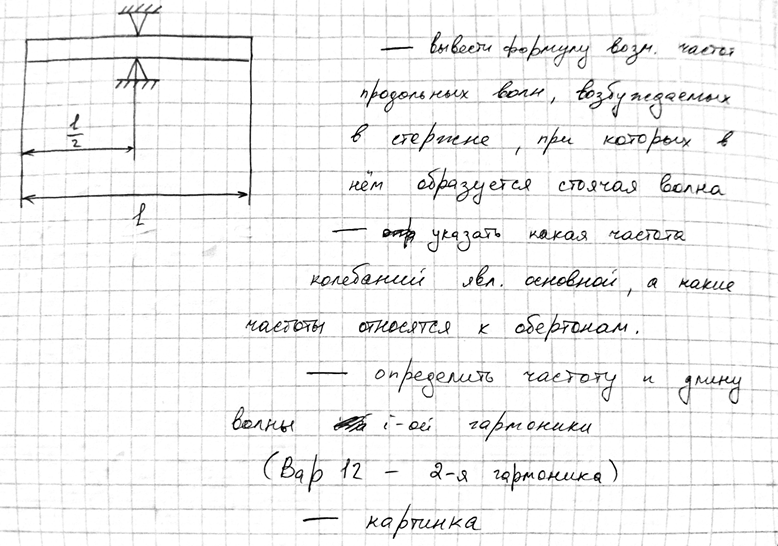 — вывести формулу возм. частот
продольных волн, возбуждаемых
в стержне, при которых в
нём образуется стоячая волна
— указать какая частота
колебаний явл. основной, а какие
частоты относятся к обертонам.
— определить частоту и длину
волны i-ой гармоники
(Вар 12 – 2-я гармоника)
— картинка
l/2
l